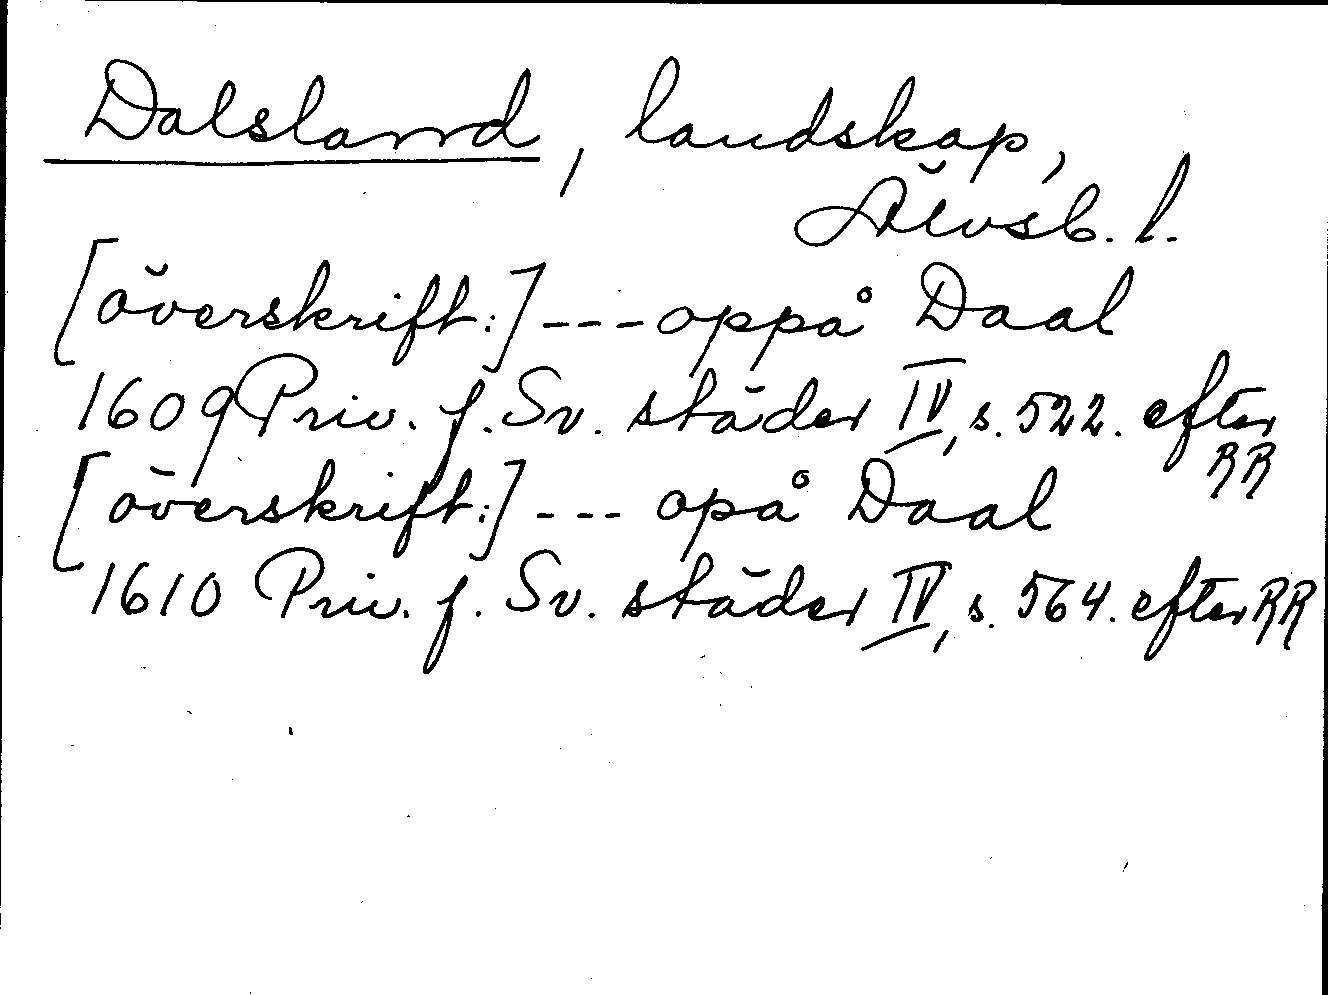 Dalsland, landskap,
Älvsb. l.
[överskrift:] --- oppå Daal
1609 Priv. f. Sv. städer IV, s. 522. efter
RR
[överskrift:] --- opå Daal
1610 Priv. f. Sv. städer IV, s. 564. efter RR